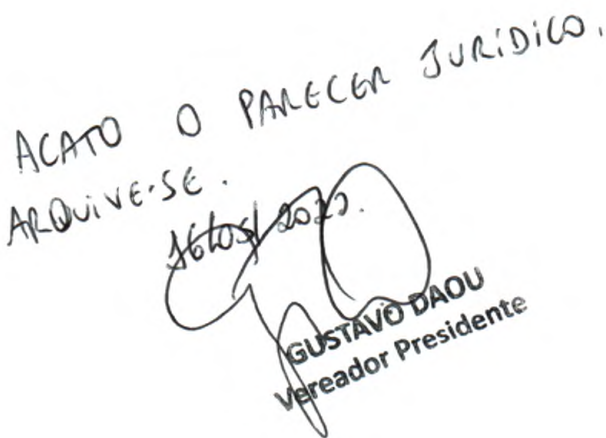 ACATO O PARECER JURÍDICO.
ARQUIVE-SE.
16/05/2022.
GUSTAVO DAOU
Vereador Presidente